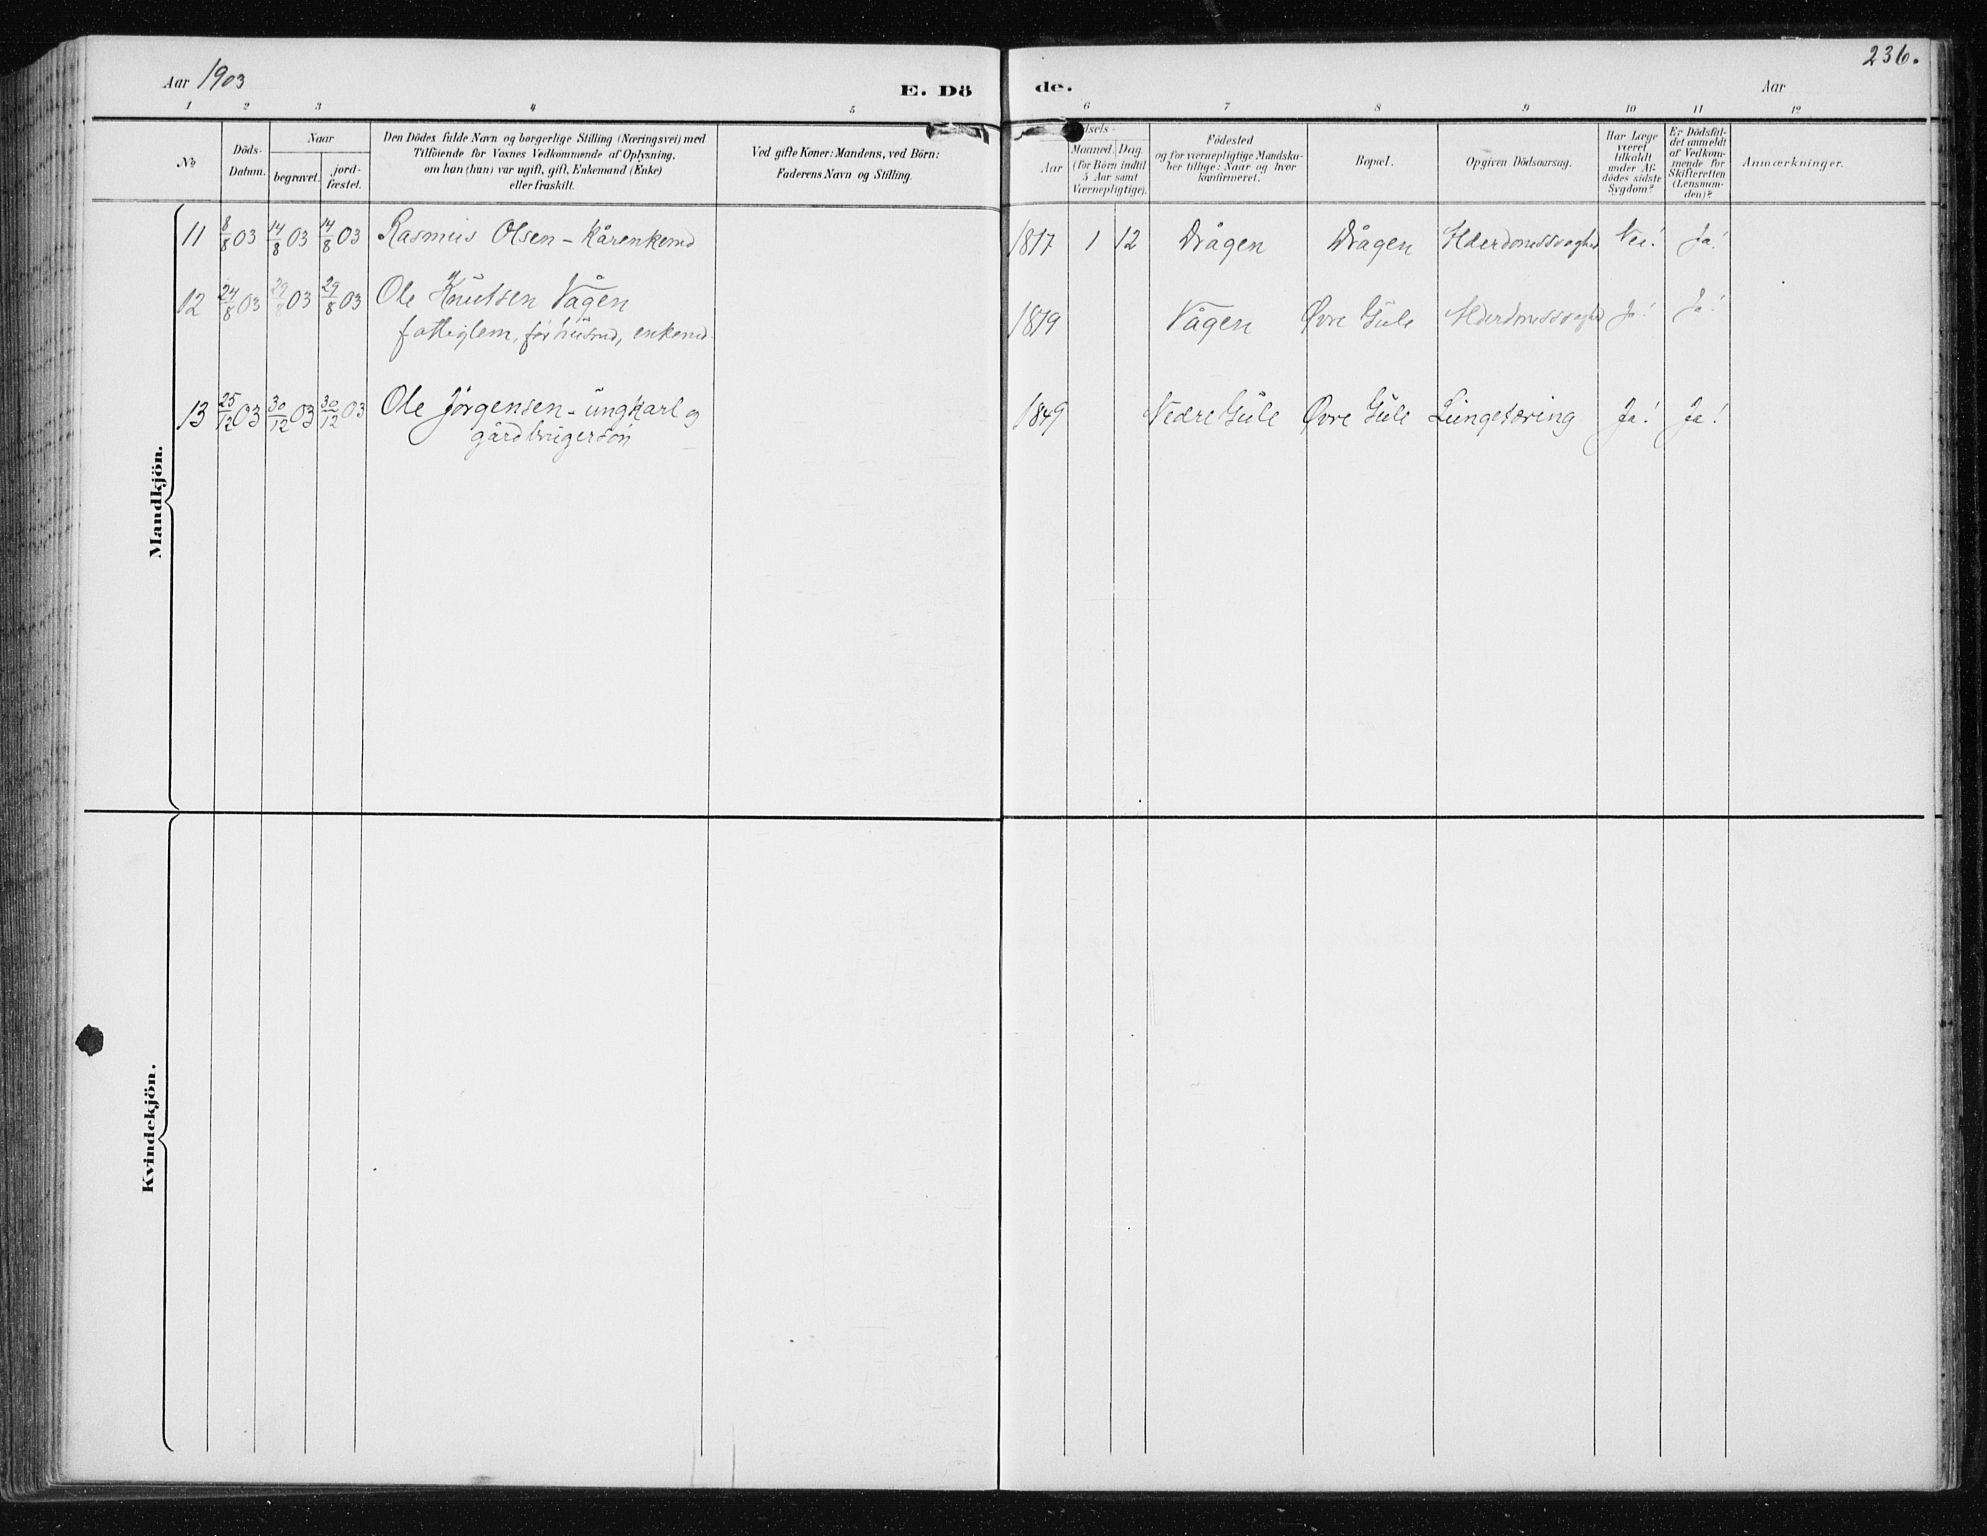 236.
Aar 1903
E. Dö
de.
Aar
1 2 3 4 5 6 7 8 9 10 11 12
No
Döds-
Datum.
Naar
begravet.
jord-
fæstet.
Den Dödes fulde Navn og borgerlige Stilling (Næringsvei) med
Tilföiende for Voxnes Vedkommende af Oplysning,
om han (hun) var ugift, gift, Enkemand (Enke)
eller fraskilt.
Ved gifte Koner: Mandens, ved Börn:
Faderens Navn og Stilling.
dsels-
Aar
Maaned.
Dag.
(for Börn indtil
5 Aar samt
Værnepligtige).
Födested
og for værnepligtige Mandska-
ber tillige: Naar og hvor
konfirmeret.
Bopæl.
Opgiven Dödsaarsag.
Har Læge
været
tilkaldt
under Af-
dödes sidste
Sygdom?
Er Dödsfal-
det anmeldt
af Vedkom-
mende for
Skifteretten
(Lensman-
den)?
Anmærkninger.
Mandkjön.
11 8/8 03 14/8 03 14/8 03 Rasmus Olsen - kårenkemd 1817 1 12 Drågen Drågen Alderdomssvaghed Nei! Ja!
12 24/8 03 29/8 03 29/8 03 Ole Knutsen Vågen
fattiglem, før husmd, enkemd. 1819 Vågen Øvre Gule Alderdomssvaghed Ja! Ja!
13 25/12 03 30/12 03 30/12 03 Ole Jørgensen - ungkarl og
gårdbrugersøn 1849 Nedre Gule Øvre Gule Lungetæring Ja! Ja!
Kvindekjön.